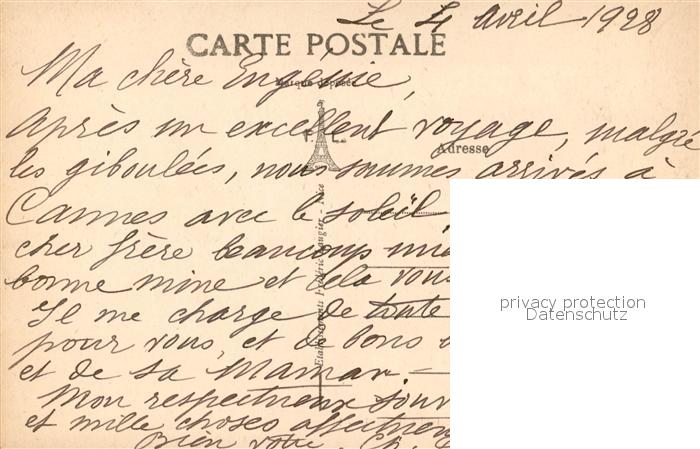 Le 4 avril 1928
CARTE POSTALE
Ma chère Eugénie,
Marque déposée
Après un excellent voyage, malgré
Adresse
les giboulées, nous sommes arrivés à
Cannes avec le soleil
cher frère beaucoup
bonne mine et cela vous
privacy protection
Datenschutz
Il me charge de toute
pour vous, et de bons
et de sa Maman. —
Mon respectueux
et mille choses
Bien votre, Ch.
Etablissements Frédéric Laugier - Nice